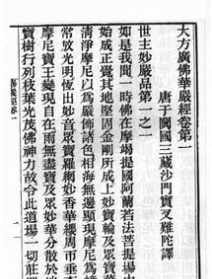 大方廣佛華嚴經卷第一
唐于闐國三藏沙門實叉難陀譯
世主妙嚴品第一之一
如是我聞一時佛在摩竭提國阿蘭若法菩提場
始成正覺其地堅固金剛所成上妙寶輪及眾寶
清淨摩尼以為嚴飾諸色相海無邊顯現摩尼為
常放光明恒出妙音眾寶羅網妙香華纓周帀垂
摩尼寶王變現自在雨無盡寶及眾妙華分散於
寶樹行列枝葉光茂佛神力故令此道場一切莊